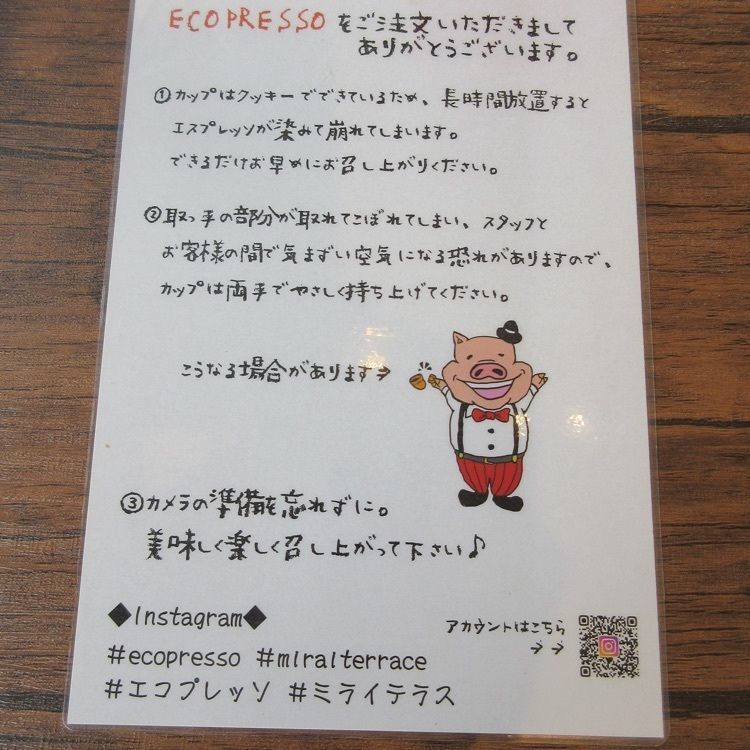 ECOPRESSO をご注文いただきまして
ありがとうございます。
①カップはクッキーでできているため、長時間放置すると
エスプレッソが染みて崩れてしまいます。
できるだけお早めにお召し上がりください。
②取っ手の部分が取れてこぼれてしまい、スタッフと
お客様の間で気まずい空気になる恐れがありますので、
カップは両手でやさしく持ち上げてください。
こうなる場合があります→
③カメラの準備を忘れずに。
美味しく楽しく召し上がって下さい♪
◆Instagram◆
アカウントはこちら
→→
#ecopresso #miraiterrace
#エコプレッソ #ミライテラス